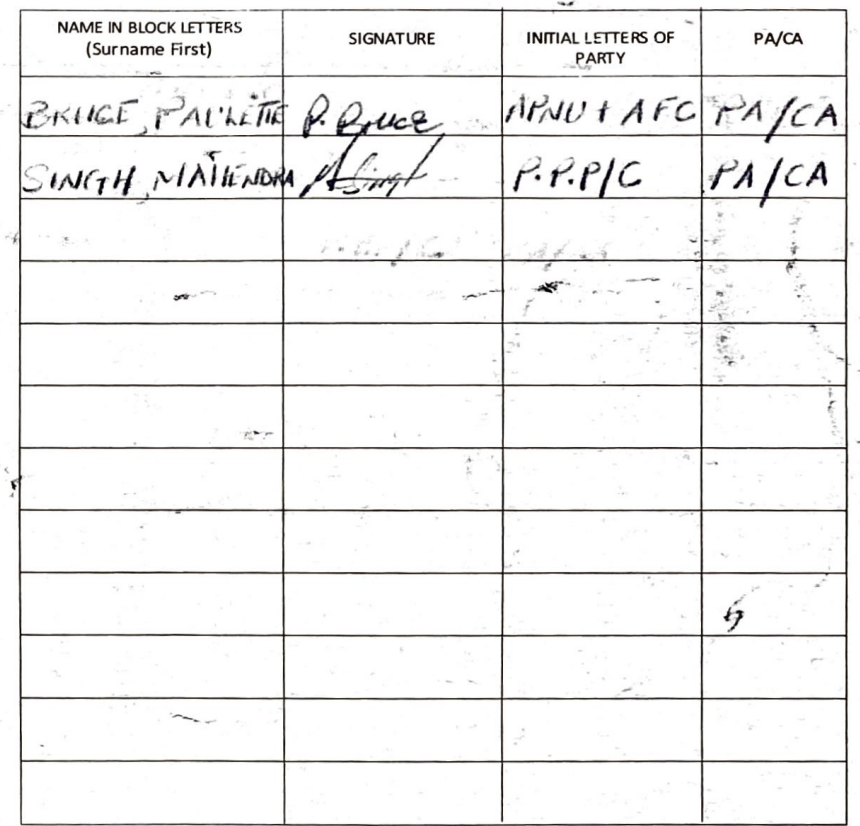 NAME IN BLOCK LETTERS
(Surname First)
SIGNATURE
INITIAL LETTERS OF
PARTY
PA/CA
BRUCE, PAULETTE P. Bruce APNU + AFC PA/CA
SINGH, MAHENDRA MSingh P.P.P/C PA/CA